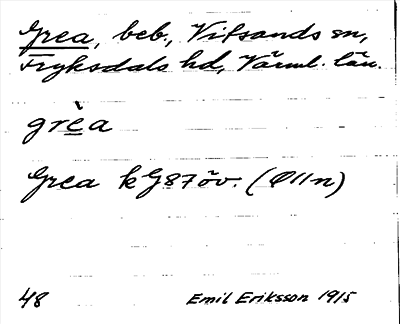 Grea, beb., Vitsands sn,
Fryksdals hd, Värml. län.
grè̲a
Grea kG87öv. (Ø11n)
48 Emil Eriksson 1915